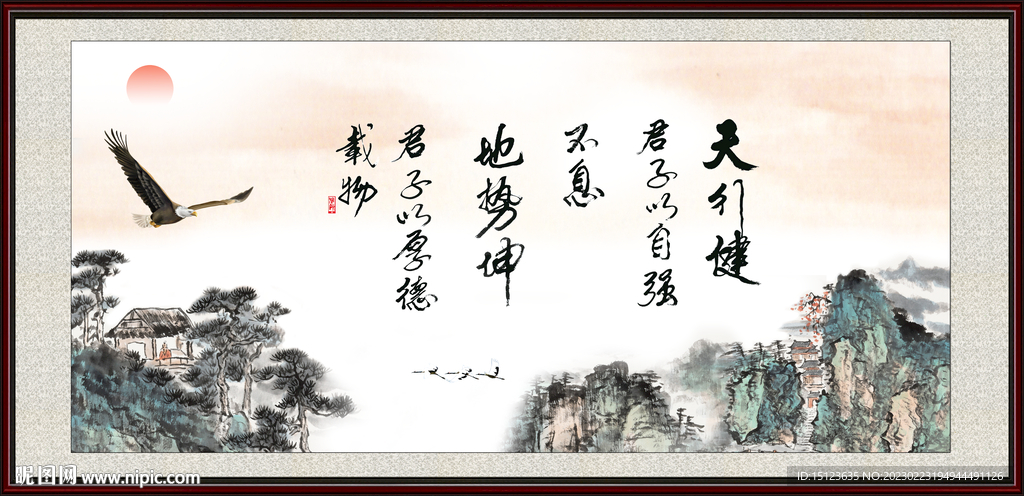 天行健
君子以自强
不息
地势坤
君子以厚德
载物
昵图网 www.nipic.com
ID:15123635 NO:20230223194944491126